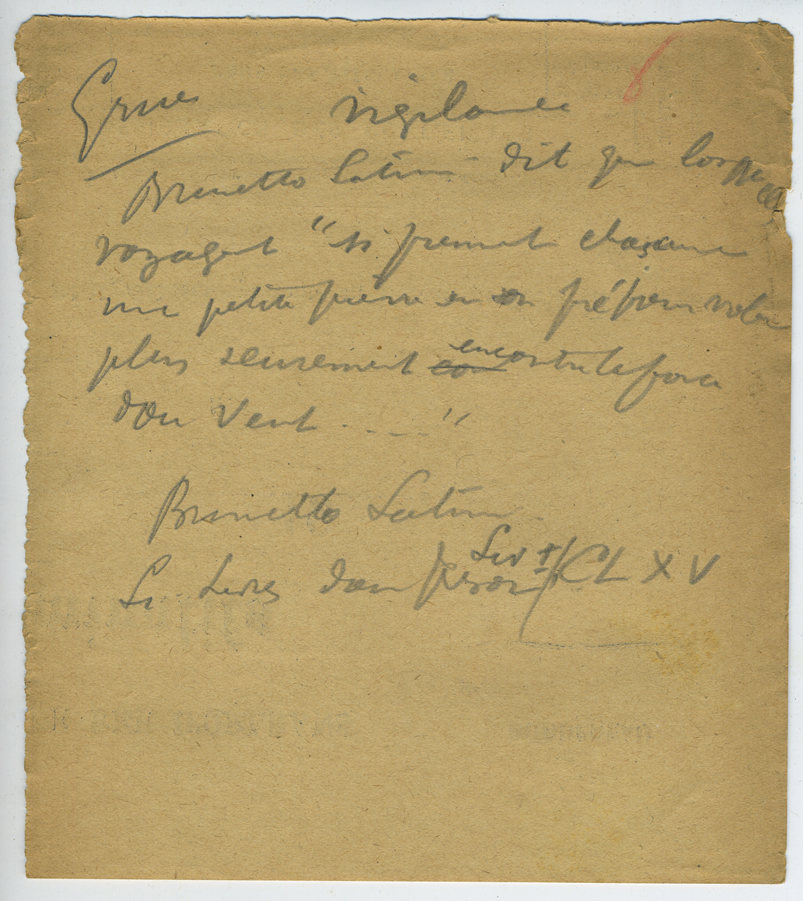 Grues vigilance
Brunetto Latini dit que lorsqu'elles
voyagent "si prennent chascune
une petite pierre en pié por voler
plus seurement encontre la force
dou vent ....."
Brunetto Latini
Li Livres dou tresor Liv I CLXV